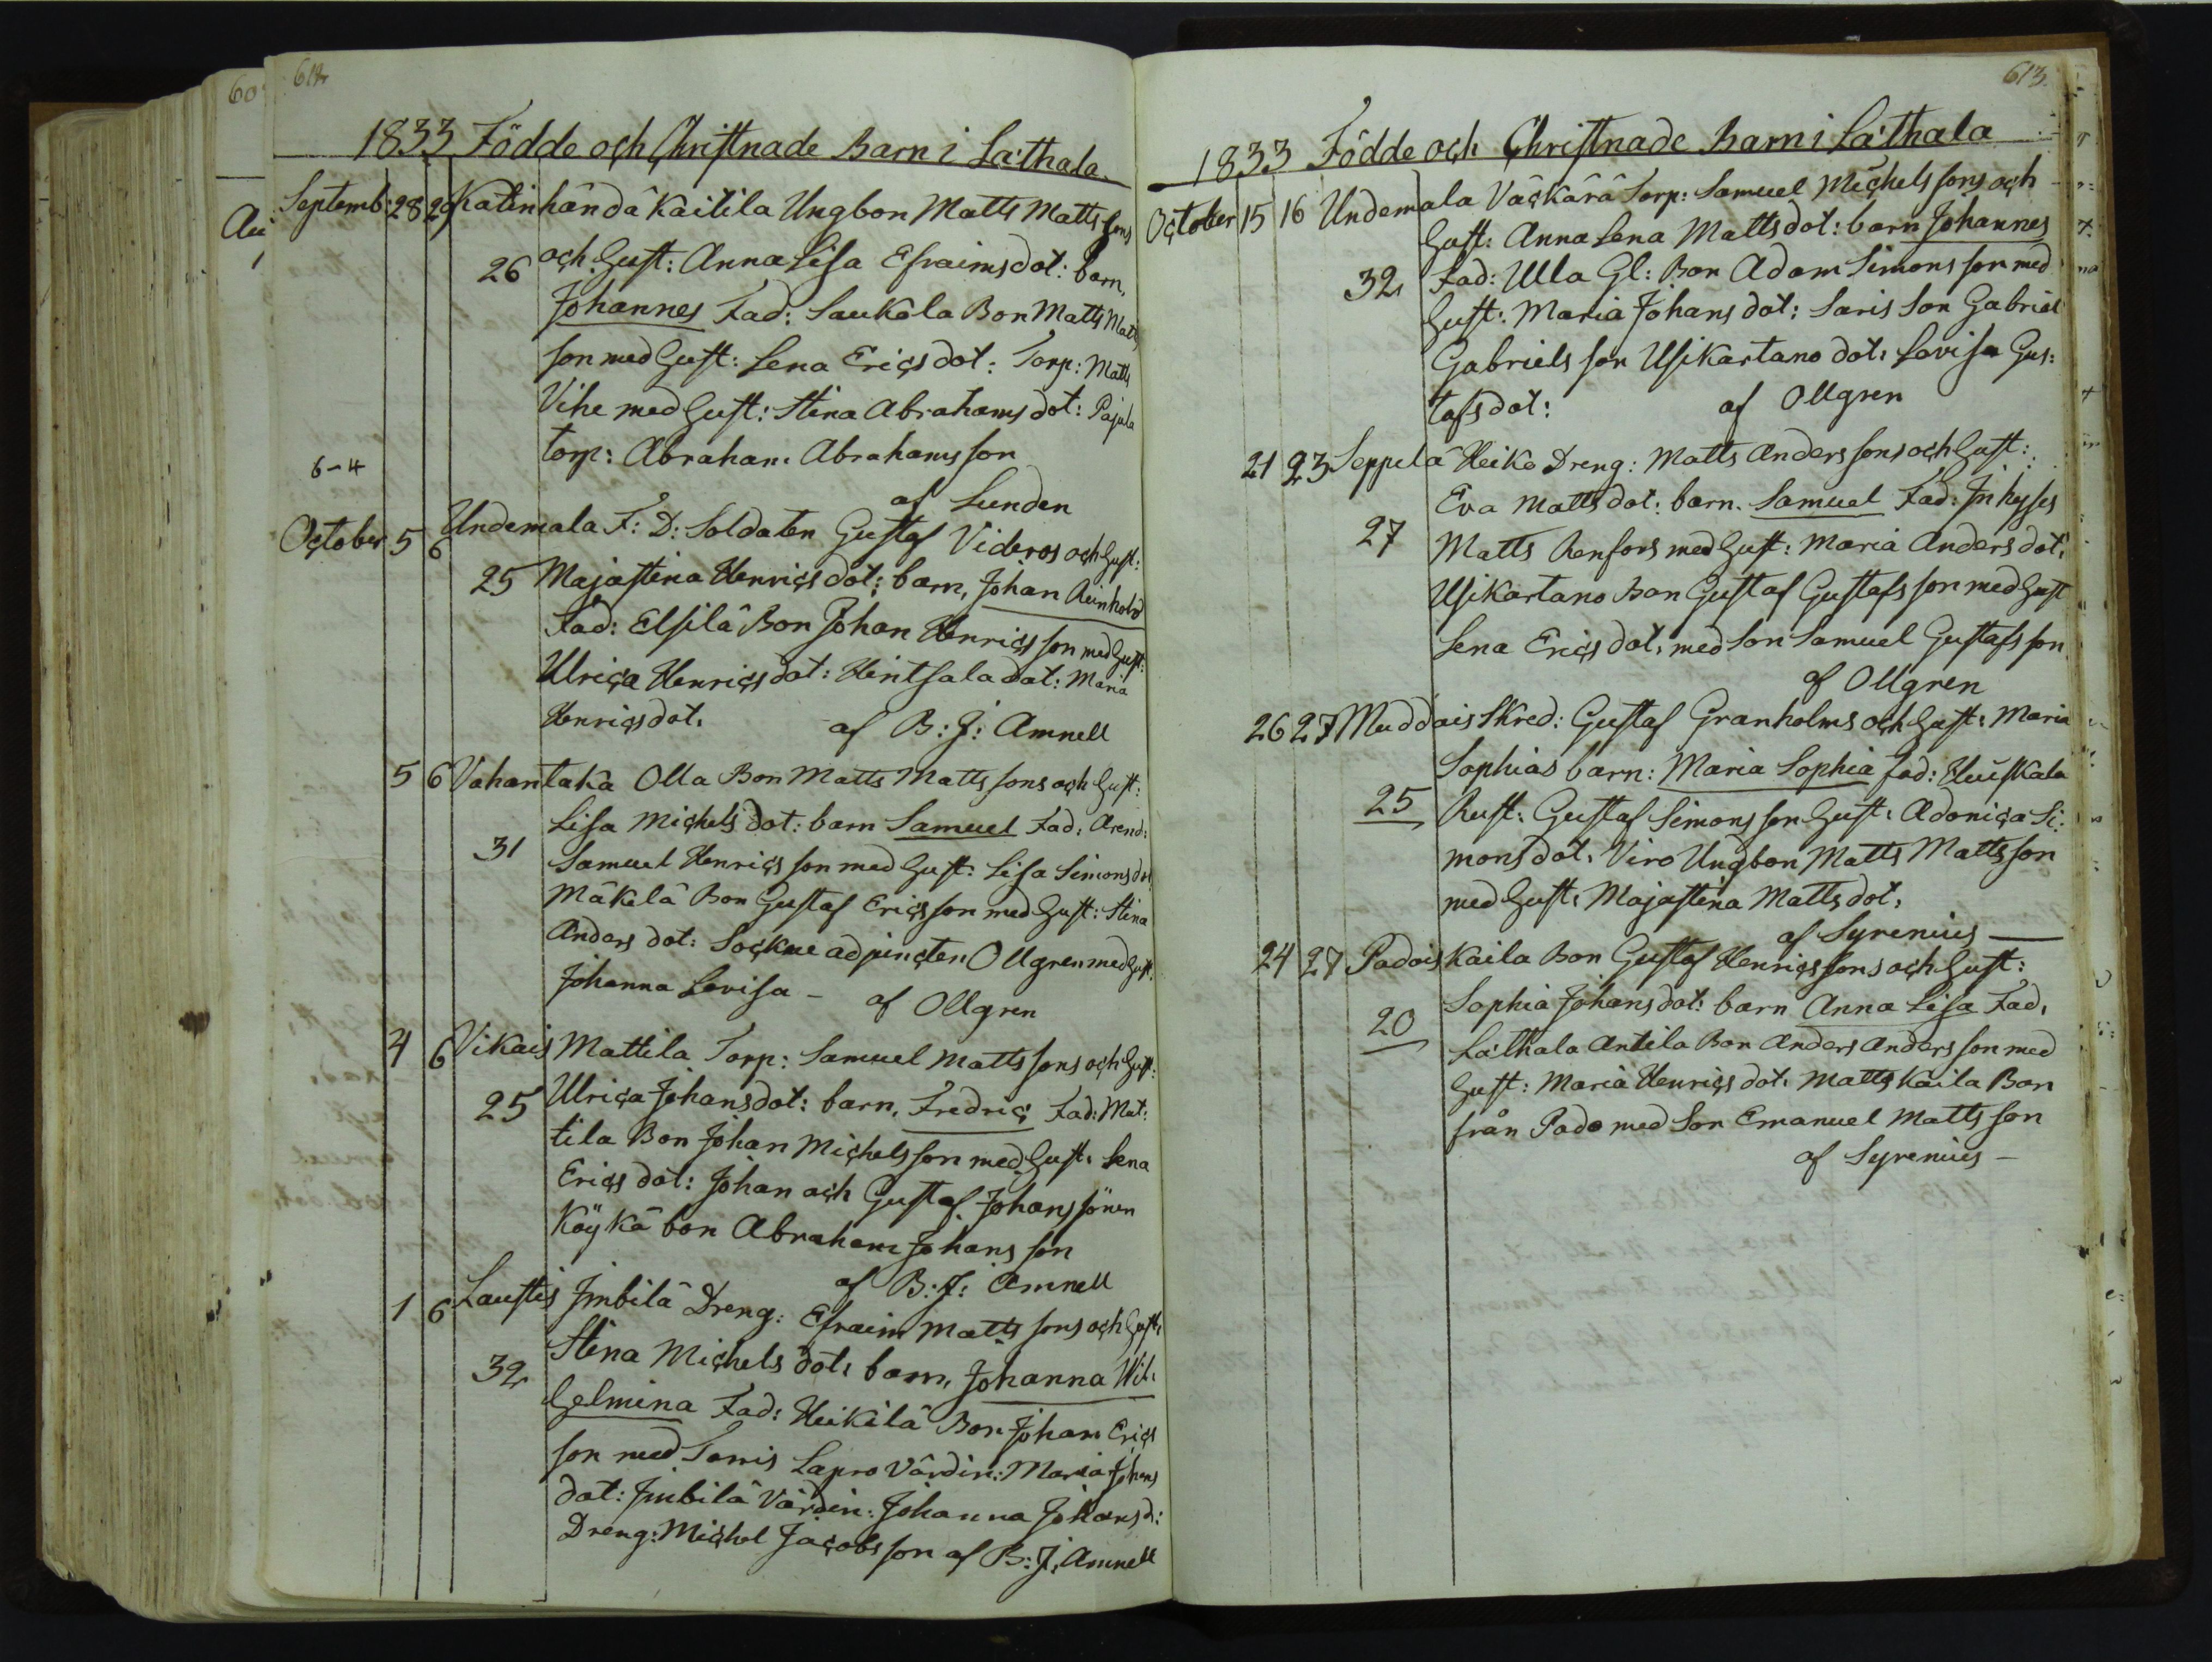 612
1833 Födde och Christnade Barn i La:thala.
Septemb: 28 29 Katinhändä Kaitila Ungbon Matts Matts sons
26 och Hust: Anna Lisa Efraims dot: barn,
Johannes Fad: Saukola Bon Matts Matts
son med Hust: Lena Erics dot: Torp: Matts
Vihe med Hust: Stina Abrahams dot: Pajula
torp: Abraham Abrahams son
6-4
af Lunden
October 5 6 Undemala F: D: Soldaten Gustaf Videros och Hust:
25 Majastina Henrics dot: barn, Johan Reinhold
Fad: Elsilä Bon Johan Henrics son med Hust:
Ulrica Henrics dot: Heintsala dot: Maria
Henrics dot: af B: J: Amnell
5 6 Vahantaka Olla Bon Matts Matts sons och Hust:
Lisa Michels dot: barn Samuel Fad: Arend:
31 Samuel Henrics son med Hust: Lisa Simons dot
Mäkelä Bon Gustaf Erics son med Hust: Stina
Anders dot: Sockne adjuncten Ollgren med Hust:
Johanna Lovisa - af Ollgren
4 6 Vikais Mattila Torp: Samuel Matts sons och Hust:
25 Ulrica Johans dot: barn, Fredric Fad: Mat:
tila Bon Johan Michels son med Hust: Lena
Erics dot: Johan och Gustaf Johans sönen
Köykä bon Abraham Johans son
af B: J: Amnell
1 6 Laustis Jmbilä Dreng: Efraim Matts sons och Hust:
Stina Michels dot: barn, Johanna Wil:
32 helmina Fad: Heikilä Bon Johan Erics
son med Torris Lapro Värdin: Maria Johans
dot: Jmbilä Värdin: Johanna Johans d:
Dreng: Michel Jacobs son af B: J: Amnell
613.
1833 Födde och Christnade Barn i La:thala
October 15 16 Undemala Väckärä Torp: Samuel Michels sons och
Hust: Anna Lena Matts dot: barn Johannes
32 Fad: Ulla Gl: Bon Adam Simons son med
Hust: Maria Johans dot: Saris Son Gabriel
Gabriels son Usikartano dot: Lovisa Gus:
tafs dot: af Ollgren
21 23 Seppelä Heike Dreng: Matts Anders sons och Hust:
Eva Matts dot: barn. Samuel Fad: Jnhyses
27 Matts Renfors med Hust: Maria Anders dot:
Usikartano Bon Gustaf Gustafs son med Hust
Lena Erics dot: med Son Samuel Gustafs son
af Ollgren
26 27 Muddais Skred: Gustaf Granholms och Hust: Maria
Sophias barn: Maria Sophia Fad:
25 Rust: Gustaf Simons son Hust: Adonica Si:
mons dot: Viro Ungbon Matts Matts son
med Hust: Majastina Matts dot:
af Syrenius
24 27 Padois Kaila Bon Gustaf Henrics sons och Hust:
Sophia Johans dot: barn Anna Lisa Fad:
20 La:thala Antila Bon Anders Anders son med
Hust: Maria Henrics dot: Matts Kaila Bon
från Pado med Son Emanuel Matts son
af Syrenius -